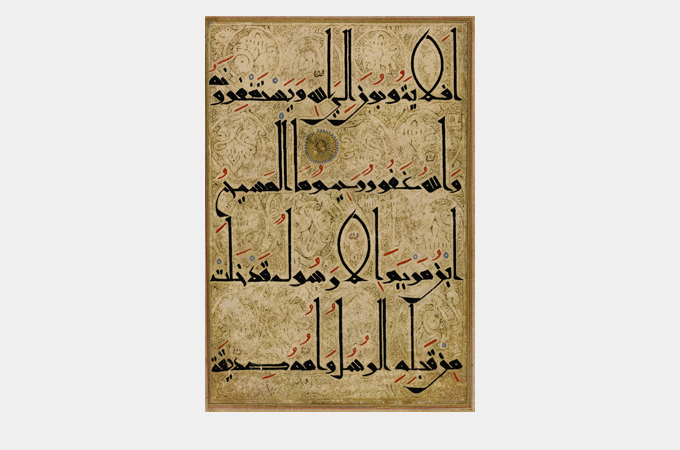 افلا يتوبون الى الله ويستغفرونه
والله غفور رحيم ما المسيح
ابن مريم الا رسول قد خلت
من قبله الرسل وامه صديقة